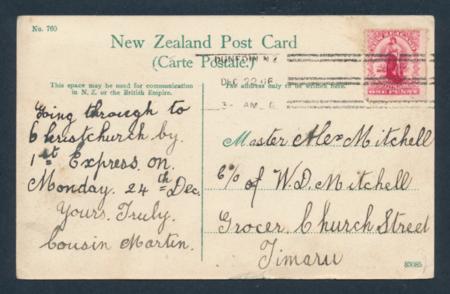 No. 760
New Zealand Post Card
(Carte Postale.)
This space may be used for communication
in N. Z. or the British Empire.
The address only to be written here.
DUNEDIN N.Z.
DEC 22 06
3- AM
ONE PENNY
Going through to
Christchurch by.
1st Express on.
Monday. 24th Dec.
Yours. Truly.
Cousin Martin.
Master Alex Mitchell
C/o of W. D. Mitchell
Grocer. Church Street
Timaru
83085